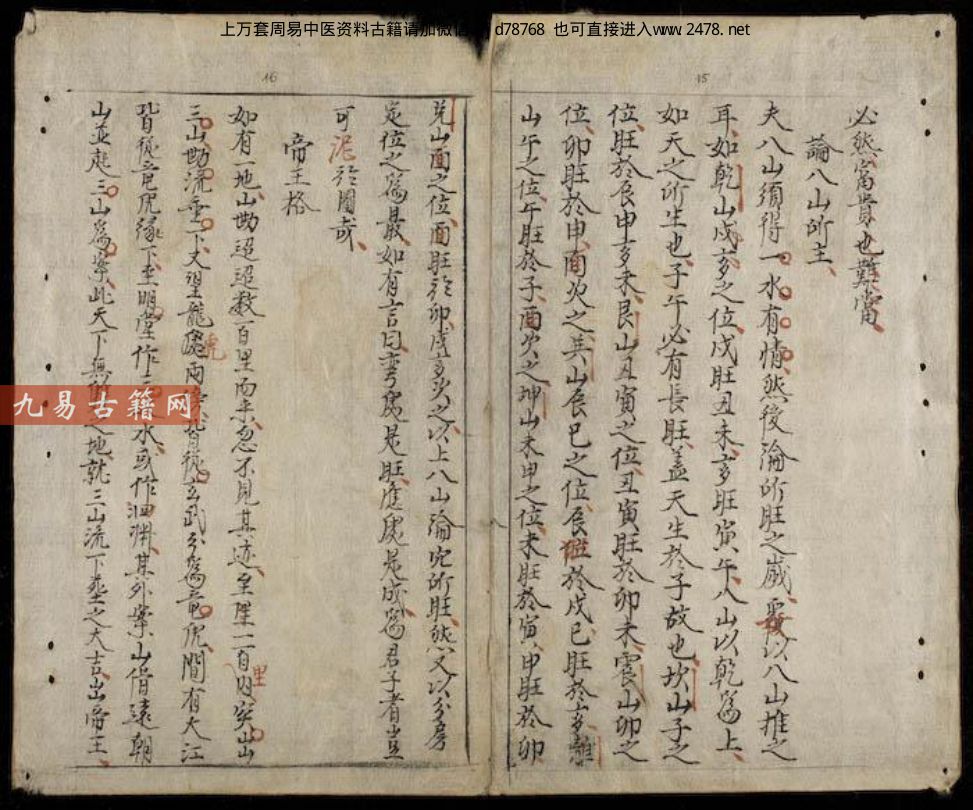 上万套周易中医资料古籍请加微信 d78768 也可直接进入www.2478.net
15
必然富貴也難當
論八山所主
夫八山須得一水有情然後論所旺之歲覆以八山推之
耳如乾山戌亥之位戌旺丑未亥旺寅午八山以乾為上
如天之所生也子午必有長旺盖天生於子故也坎山子之
位旺於辰申亥未艮山丑寅之位丑寅旺於卯未震山卯之
位卯旺於申酉火之巽山辰巳之位辰旺於戌巳旺於亥離
山午之位午旺於子酉火之坤山未申之位未旺於寅申旺於卯
16
兌山酉之位酉旺於卯虛亥火之以上八山論究所旺然又以分房
定位之為最如有言曰弯處是旺處是成為君子者豈
可泥於圖哉
帝王格
如有一地山勘迢迢数百里而來忽不見其迹至里一百内突山
三山勘流垂下丈望龍處虎兩旁皆從玄武分為竜虎間有大江
皆從竜虎緣下至明堂作水或作湖其外案山借遠朝
山並起三山為案此天下無之地就三山流下葬之大吉出帝王
九易古籍网